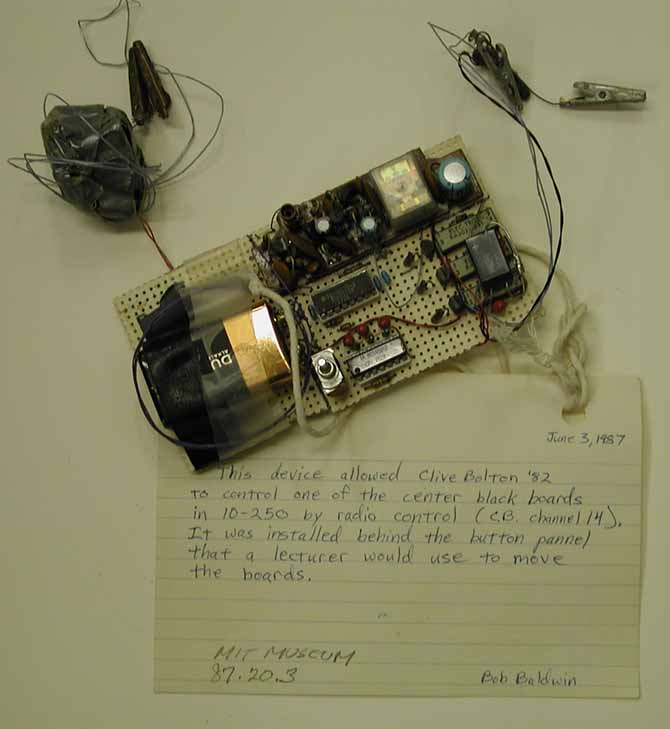 DU
ALKALI
June 3, 1987
This device allowed Clive Bolton '82
to control one of the center black boards
in 10-250 by radio control (C.B. channel 14).
It was installed behind the button pannel
that a lecturer would use to move
the boards.
MIT MUSEUM
87.20.3
Bob Baldwin